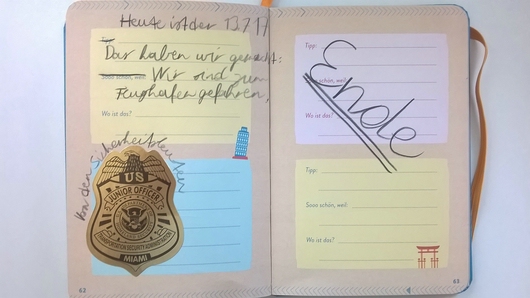 Heute ist der 13.7.17
Das haben wir gemacht:
Sooo schön, weil:
Wir sind zum
Flughafen gefahren.
Wo ist das?
Von den Sicherheitsleuten
US
JUNIOR OFFICER
TRANSPORTATION SECURITY ADMINISTRATION
MIAMI
62
Tipp:
Sooo schön, weil:
Wo ist das?
Ende
Tipp:
Sooo schön, weil:
Wo ist das?
63